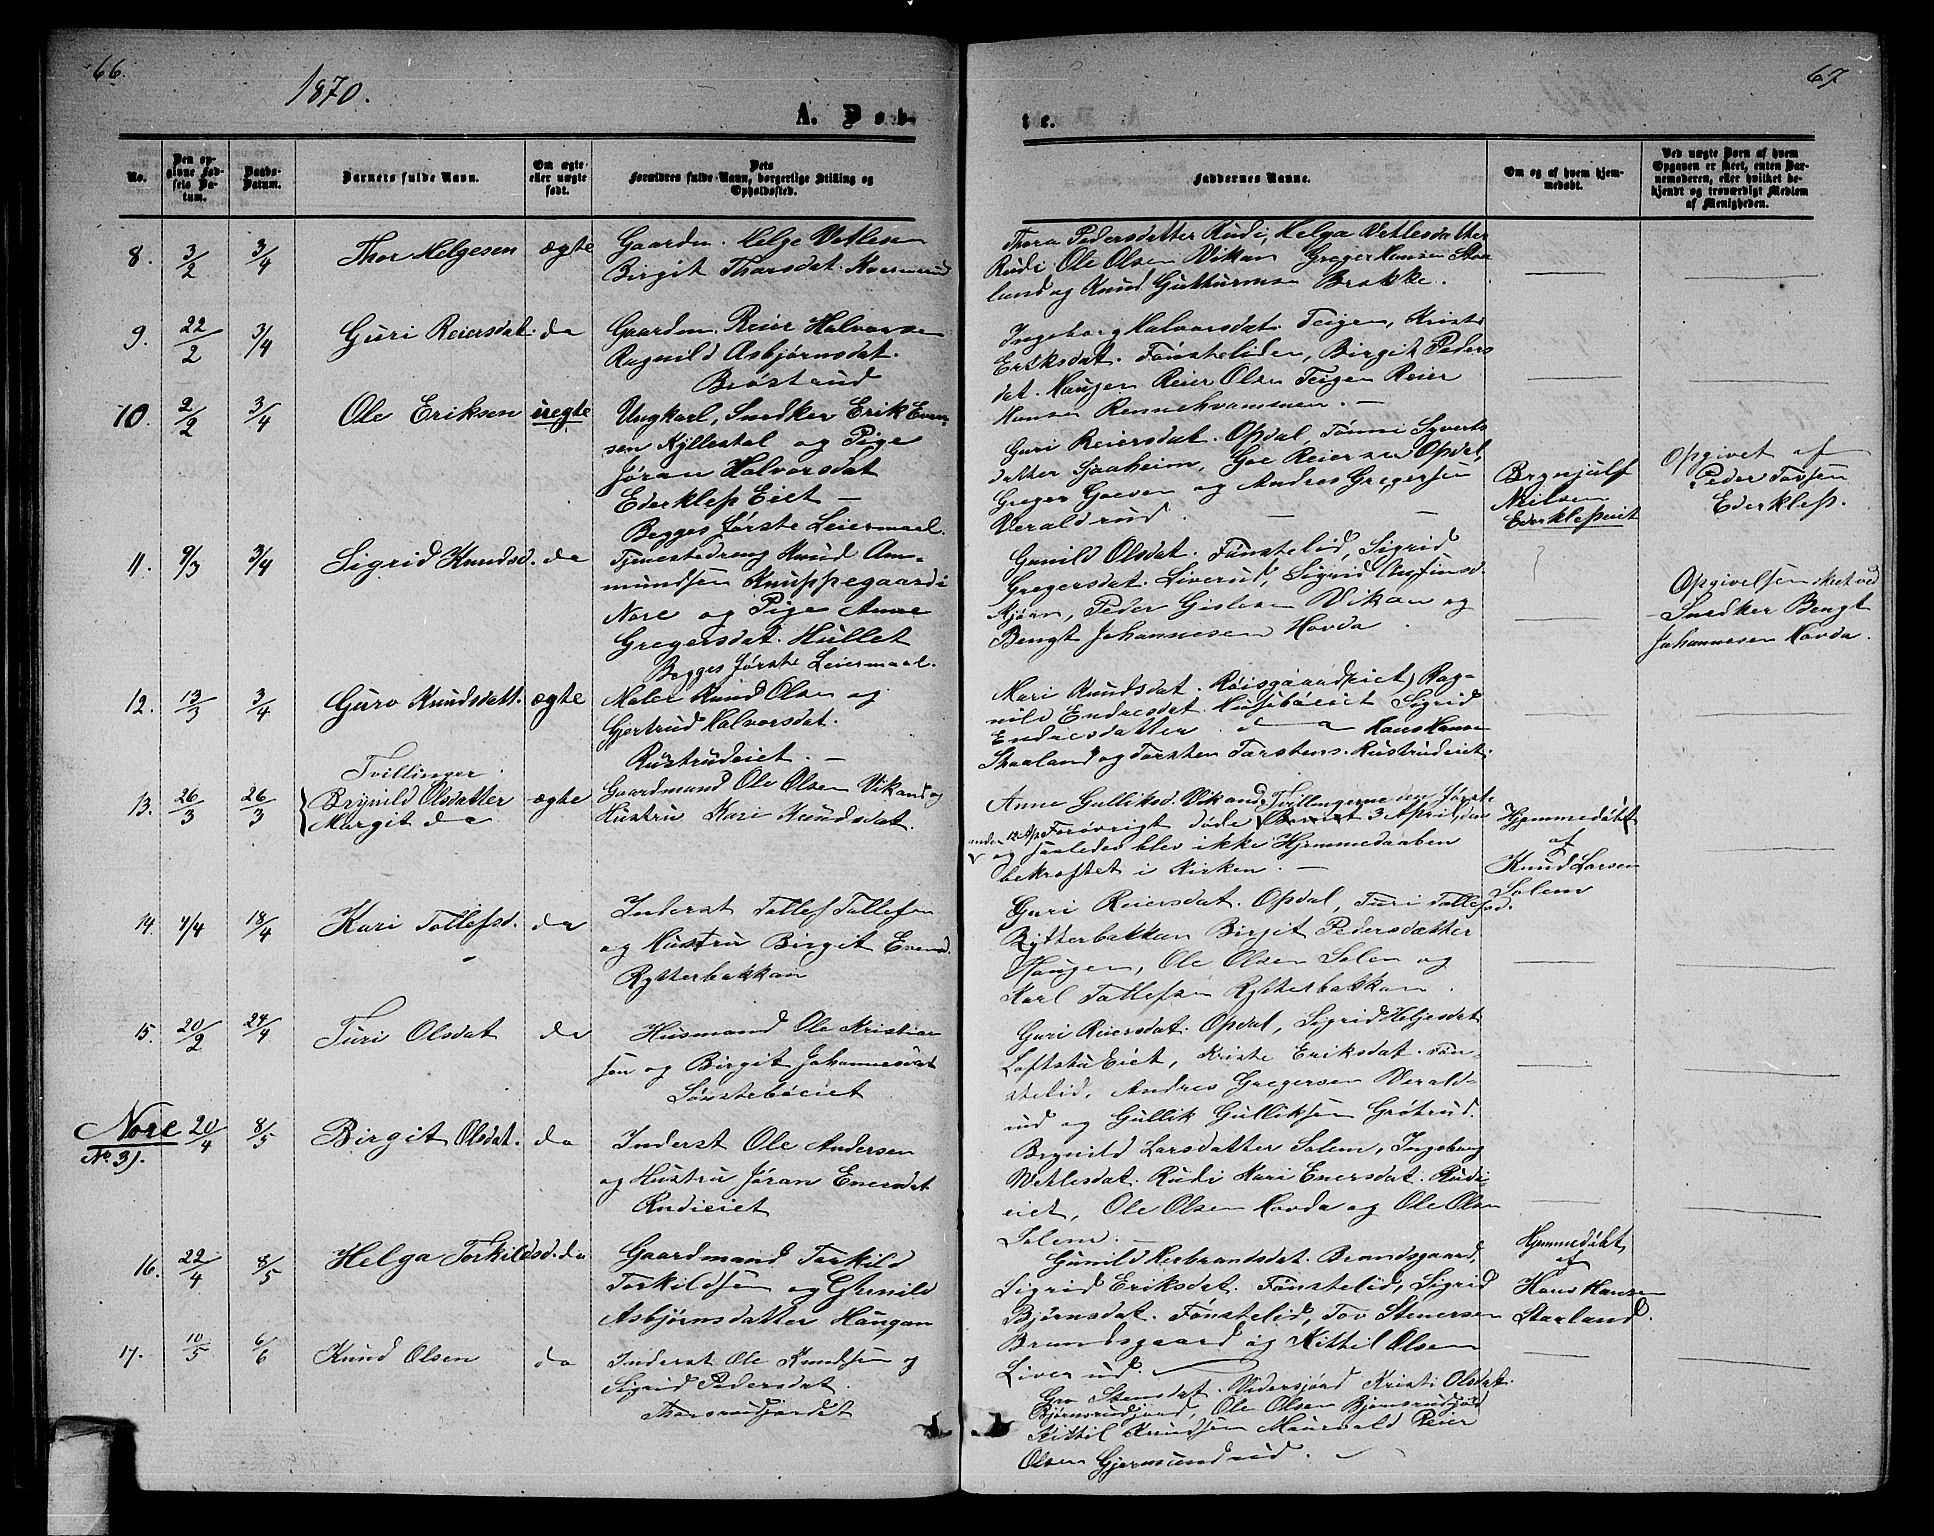 66.
1870.
A. Døb-
No.
Den op-
givne Fød-
sels Da-
tum.
Daabs-
Datum.
Barnets fulde Navn.
Om ægte
eller uægte
født.
Dets
Forældres fulde Navn, borgerlige Stilling og
Opholdssted.
8. 3/2 3/4 Thor Helgesen ægte
Gaardm. Helge Vetlesen
Birgit Thorsdat.
9. 22/2 3/4 Guri Reiersdat. do
Gaardm. Reier Halvorsen
Ragnild Asbjørnsdat.
Brøstrud
10. 2/2 3/4 Ole Eriksen uægte
Ungkarl, Snedker Erik Even-
sen Kyllestal og Pige
Jøran Halvorsdat
Ederklep Eiet —
Begges første Leiermaal.
11. 9/3 3/4 Sigrid Knudsd. do
Tjenestedreng Knud Am-
mundsen Knuppegaard i
Nore og Pige Anne
Gregersdat. Hullet
Begges første Leiermaal.
12. 13/3 3/4 Guro Knudsdatt. ægte
Maler Knud Olsen og
Gjertrud Halvorsdat.
Rustrudeiet. —
Tvillinger.
13. 26/3 26/3 Brynild Olsdatter ægte
Margit do
Gaardmand Ole Olsen Vikand og
Hustru Kari Knudsdat.
14. 4/4 18/4 Kari Tollefsd. do
Inderst Tollef Tollefsen
og Hustru Birgit Evensd.
Rytterbakkan
15. 20/2 24/4 Turi Olsdat do
Husmand Ole Kristian
sen og Birgit Johannesdat
Sønstebøeiet
Nore 20/4 8/5 Birgit Olsdat. do
No. 31.
Inderst Ole Andersen
og Hustru Jøran Enersdat.
Rudieiet
16. 22/4 8/5 Helga Torkildsd. do
Gaardmand Torkild
Torkildsen og Gunild
Asbjørnsdatter Haugan
17. 10/5 6/6 Knud Olsen do
Inderst Ole Knudsen og
Sigrid Pedersdat.
67
te.
Faddernes Navne.
Om og af hvem hjem-
medøbt.
Ved uægte Børn af hvem
Opgaven er skeet, enten Bar-
nemoderen, eller hvilket be-
kjendt og troværdigt Medlem
af Menigheden.
Thora Pedersdatter Rudi, Helga Vetlesdatter
Rudi Ole Olsen Vikan Greger Hansen Staa
land og Knud Gutturmsen Brakke.
Ingeborg Halvorsdat. Teigen, Kristi
Eriksdat. Fønstelien, Birgit Peders
dat. Haugen Reier Olsen Teigen Reier
Hansen Rennehvammen. —
Guri Reiersdat. Opdal, Tønni Syverts
datter Sjaaheim, Goe Reiersen Opdal,
Greger Goesen og Andres Gregersen
Veraldrud.
Brynjulf
Nielsen
Ederklepeiet
Opgivet af
Peder Tovsen
Ederklep.
Gunild Olsdat. Fønstelid, Sigrid
Gregersdat. Liverud, Sigrid
Kjøan, Peder Gislesen Vikan og
Bengt Johannesen Hovda.
Opgivelsen skeet ved
Snedker Bengt
Johannesen Hovda.
Mari Knudsdat. Røisgaard(eiet) Rag-
nild Endresdat Husebøeiet Sigrid
Endresdatter. d o Hans Hansen
Skaaland og Torsten Torstens. Rustrudeiet.
Anne Gulliksd. Vikand. Tvillingerne den første
anden 12 Ap. Forøvrigt døde 3 April, den
og saaledes blev ikke Hjemmedaaben
bekræftet i Kirken. —
Hjemmedøbt
af
Knud Larsen
Solem
Guri Reiersdat. Opdal, Turi Tollefsd.
Rytterbakkan Birgit Pedersdatter
Haugen, Ole Olsen Solem og
Karl Tollefsen Rytterbakkan.
Guri Reiersdat. Opdal, Sigrid Helgesdat
Loftstu Eiet, Kriste Eriksdat. Føn-
stelid, Andres Gregersen Verald-
rud og Gullik Gulliksen Grøtrud.
Brynild Larsdatter Solem, Ingeborg
Vetlesdat. Rudi Kari Enersdat. Rudi-
eiet, Ole Olsen Hovda og Ole Olsen
Solem. —
Gunild Herbrandsdat. Brandsgaard,
Sigrid Eriksdat. Fønstelid, Sigrid
Bjørnsdat. Fønstelid, Tov Stenersen
Brandsgaard og Kittil Olsen
Liverud.
Hjemmedøbt
af
Hans Hansen
Staaland.
Gro Stensdat. Vidersjord Kristi Olsdat.
Bjørnsrudjord, Ole Olsen Bjørnsrudjord
Kittil Knudsen Reier
Olsen Gjermundrud.